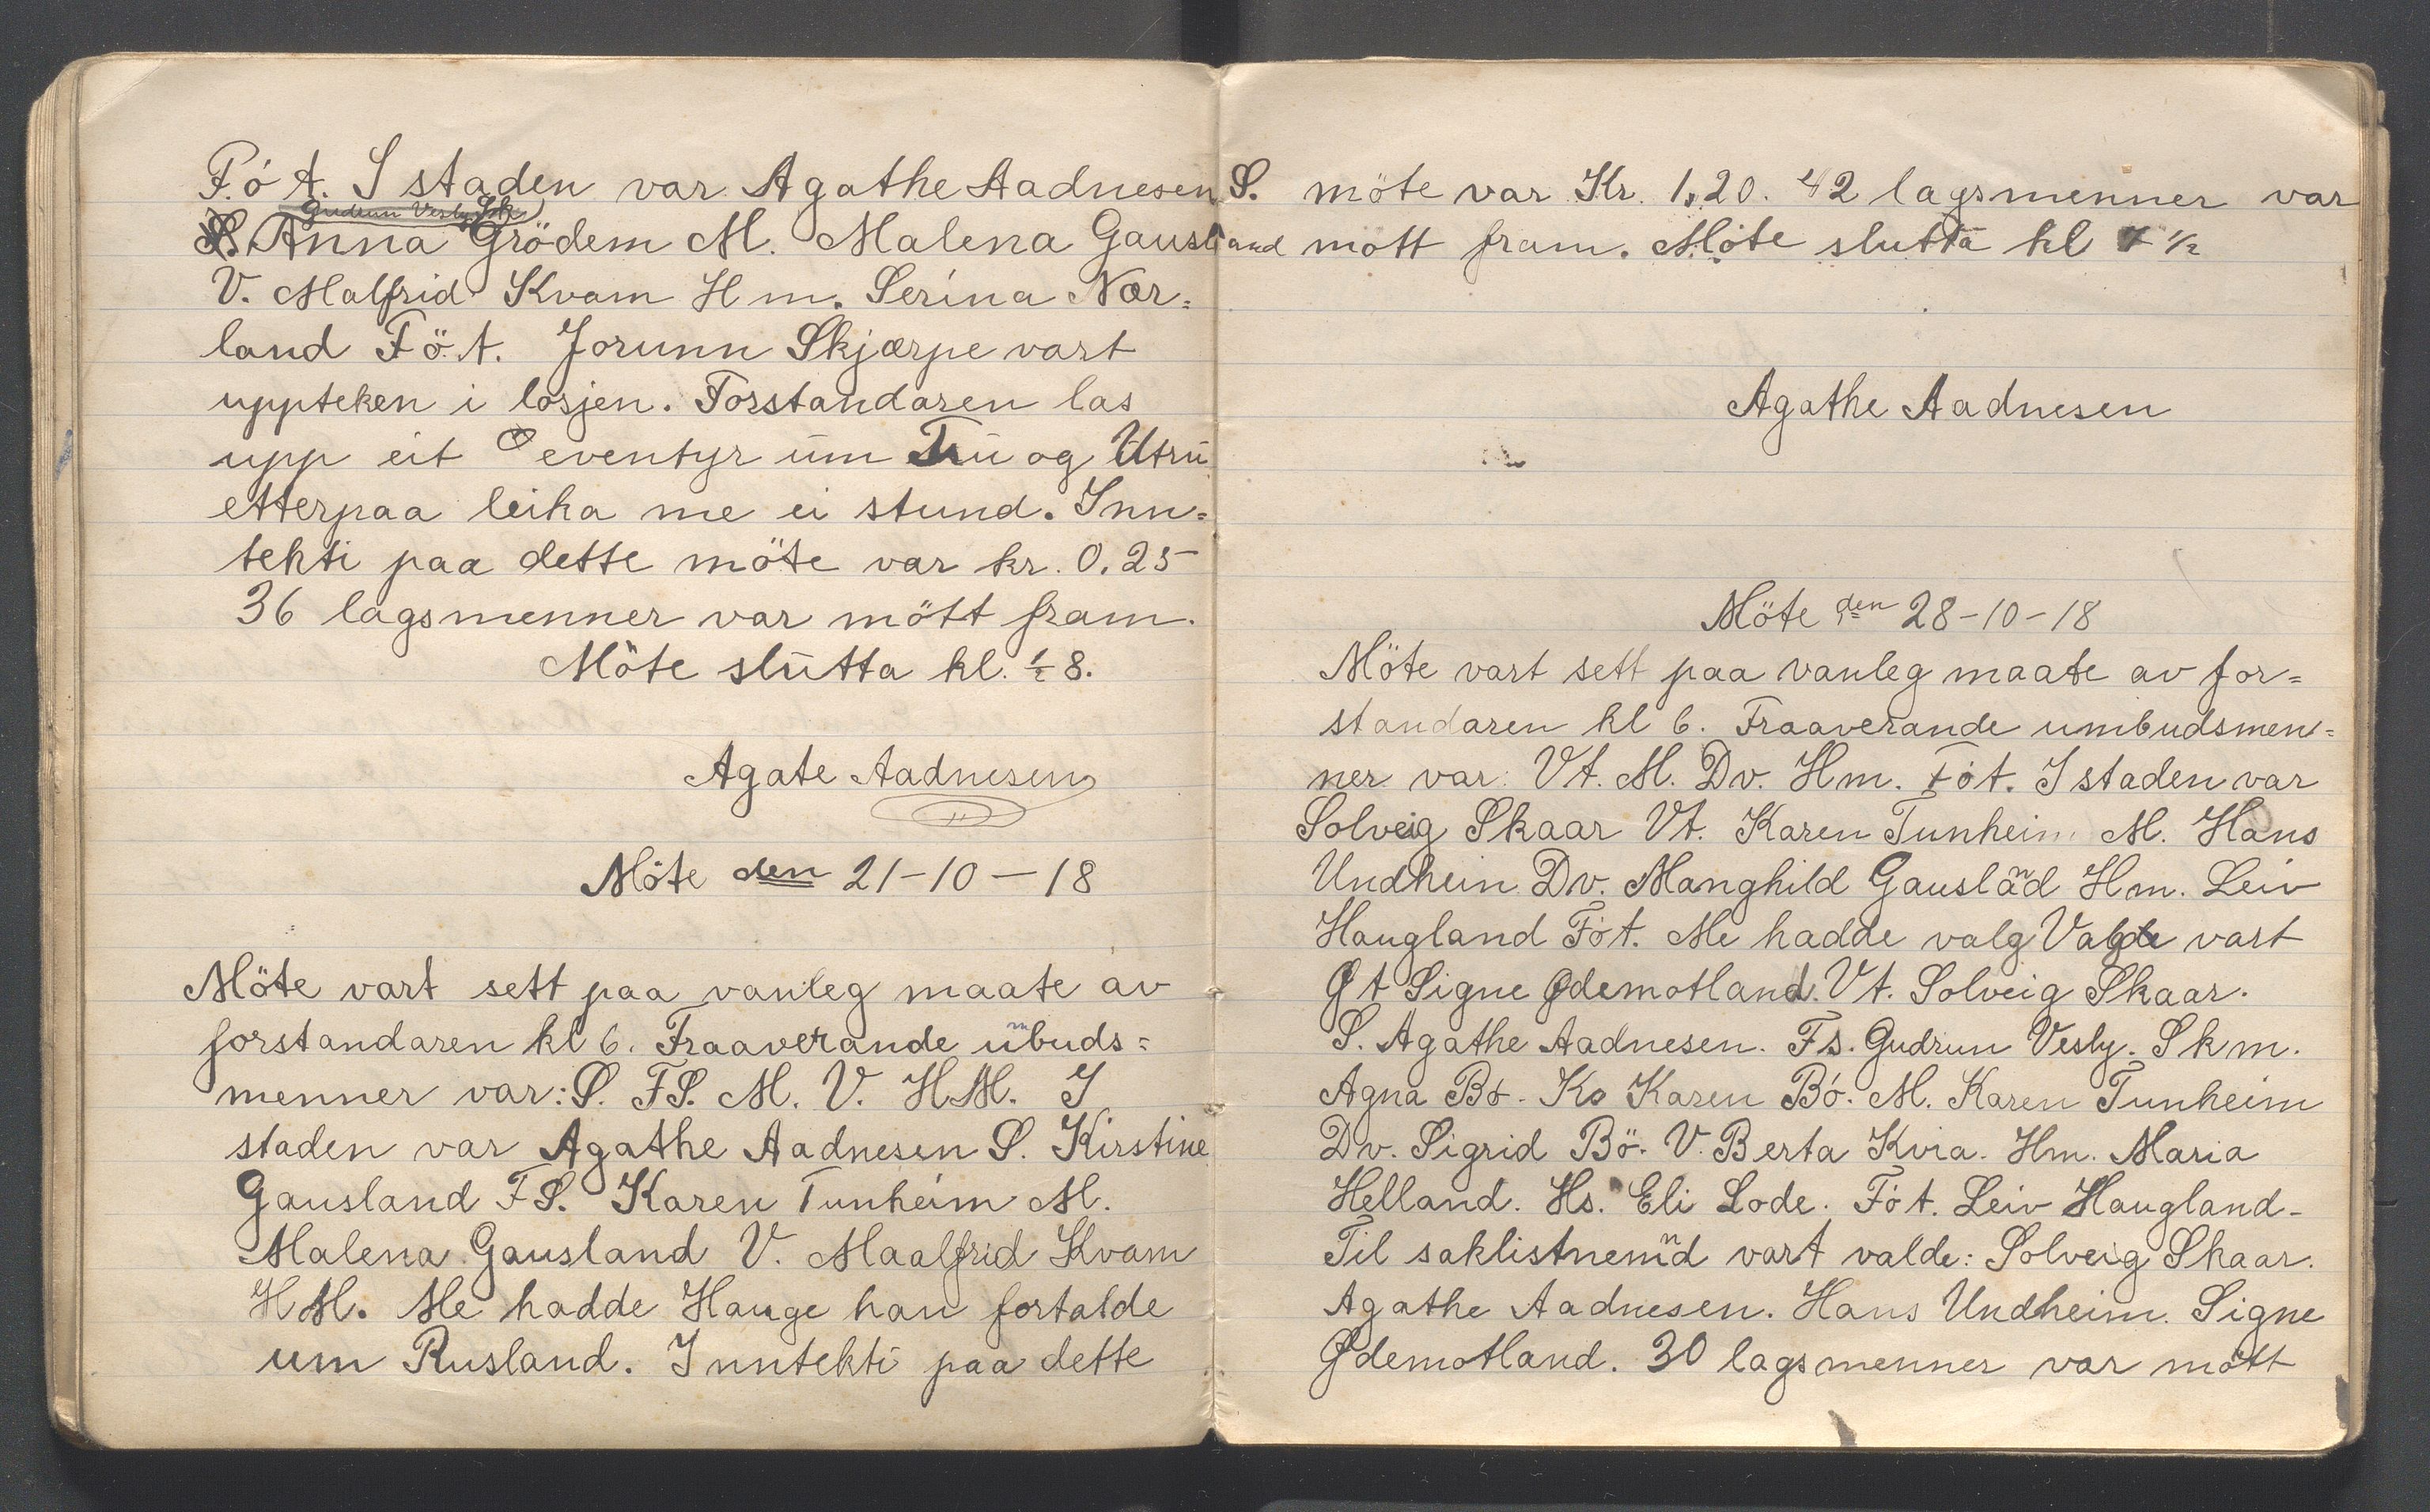 F.ö t. I staden var Agathe Aadnesen S.
Gudrun Vesly Fsk
Anna Grödem M. Malena Gausland
V. Malfrid Kvam Hm. Serina Nær=
land Fö.t. Jorunn Skjærpe vart
uppteken i losjen. Forstandaren las
upp eit eventyr um Tru og Utru
etterpaa leika me ei stund. Inn=
tekti paa dette möte var kr. 0.25
36 lagsmenner var mött fram.
Möte slutta kl. ½ 8.
Agate Aadnesen
Möte den 21-10-18
Möte vart sett paa vanleg maate av
forstandaren kl 6. Fraaverande umbuds=
menner var: S. FS. M. V. H.M. I
staden var Agathe Aadnesen S. Kirstine
Gausland FS. Karen Tunheim M.
Malena Gausland V. Maalfrid Kvam
HM. Me hadde Hauge han fortalde
um Rusland. Inntekti paa dette
möte var Kr. 1,20. 42 lagsmenner var
mött fram. Möte slutta kl 7 ½
Agathe Aadnesen
Möte den 28-10-18
Möte vart sett paa vanleg maate av for=
standaren kl 6. Fraaverande umbudsmen=
ner var: Vt. M. Dv. Hm. Föt. I staden var
Solveig Skaar Vt. Karen Tunheim M. Hans
Undhein Dv. Manghild Gausland Hm. Leiv
Haugland Föt. Me hadde valg Valgde vart
Øt Signe Ødemotland. Vt. Solveig Skaar.
S. Agathe Aadnesen. Fs. Gudrun Vesly. Skm.
Agna Bö. Ks Karen Bö. M. Karen Tunheim
Dv. Sigrid Bö. V. Berta Kvia. Hm. Maria
Helland. Hs. Eli Lode. Föt. Leiv Haugland-
Til saklistnemnd vart valde: Solveig Skaar.
Agathe Aadnesen. Hans Undheim. Signe
Ødemotland. 30 lagsmenner var mött